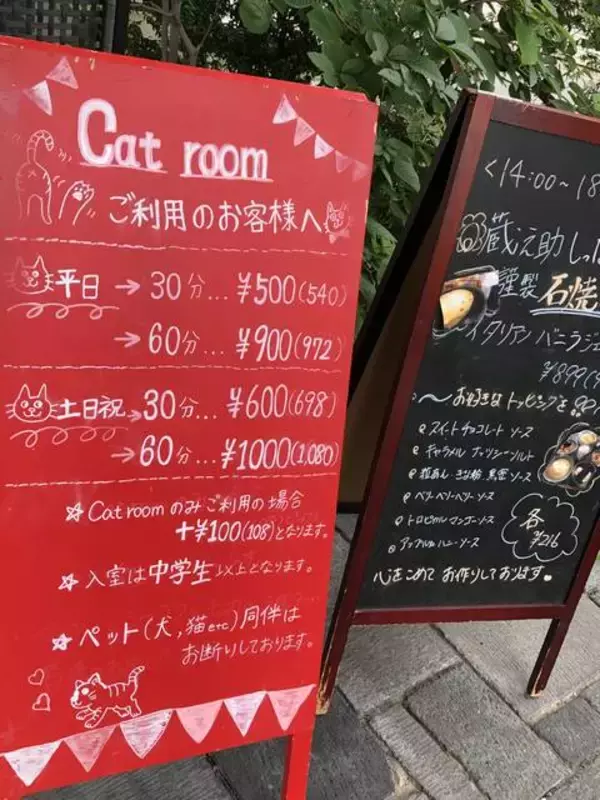 Cat room
ご利用のお客様へ
平日 → 30分... ¥500(540)
→ 60分... ¥900(972)
土日祝 → 30分... ¥600(698)
→ 60分... ¥1000(1,080)
☆ Cat roomのみご利用の場合
+¥100(108)となります。
☆ 入室は中学生以上となります。
☆ ペット(犬,猫etc)同伴は
お断りしております。
<14:00~18
蔵之助しっぽ
謹製 石焼
イタリアンバニラジェ
¥899(9
~お好きなトッピングを
スイートチョコレートソース
キャラメルナッツシーソルト
粒あん・きな粉 黒蜜ソース
ベリーベリーベリーソース
トロピカルマンゴーソース
アップルハニーソース
各
¥216
心をこめてお作りしております